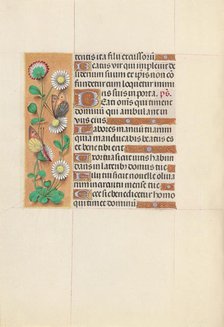 tentis ita filii excussorum
Beatus vir qui implevit de
siderium suum ex ipsis non co
fundetur cum loquetur inimi
cis suis in porta. ps.
Beati omnes qui timent
dominum qui ambulant in
viis eius.
Labores manuum tuarum
quia manducabis beatus es
et bene tibi erit
Uxor tua sicut vitis habun
dans in lateribus domus tue
Filii tui sicut novelle oliva
rum in circuitu mense tue
Ecce sic benedicetur homo
qui timet dominum